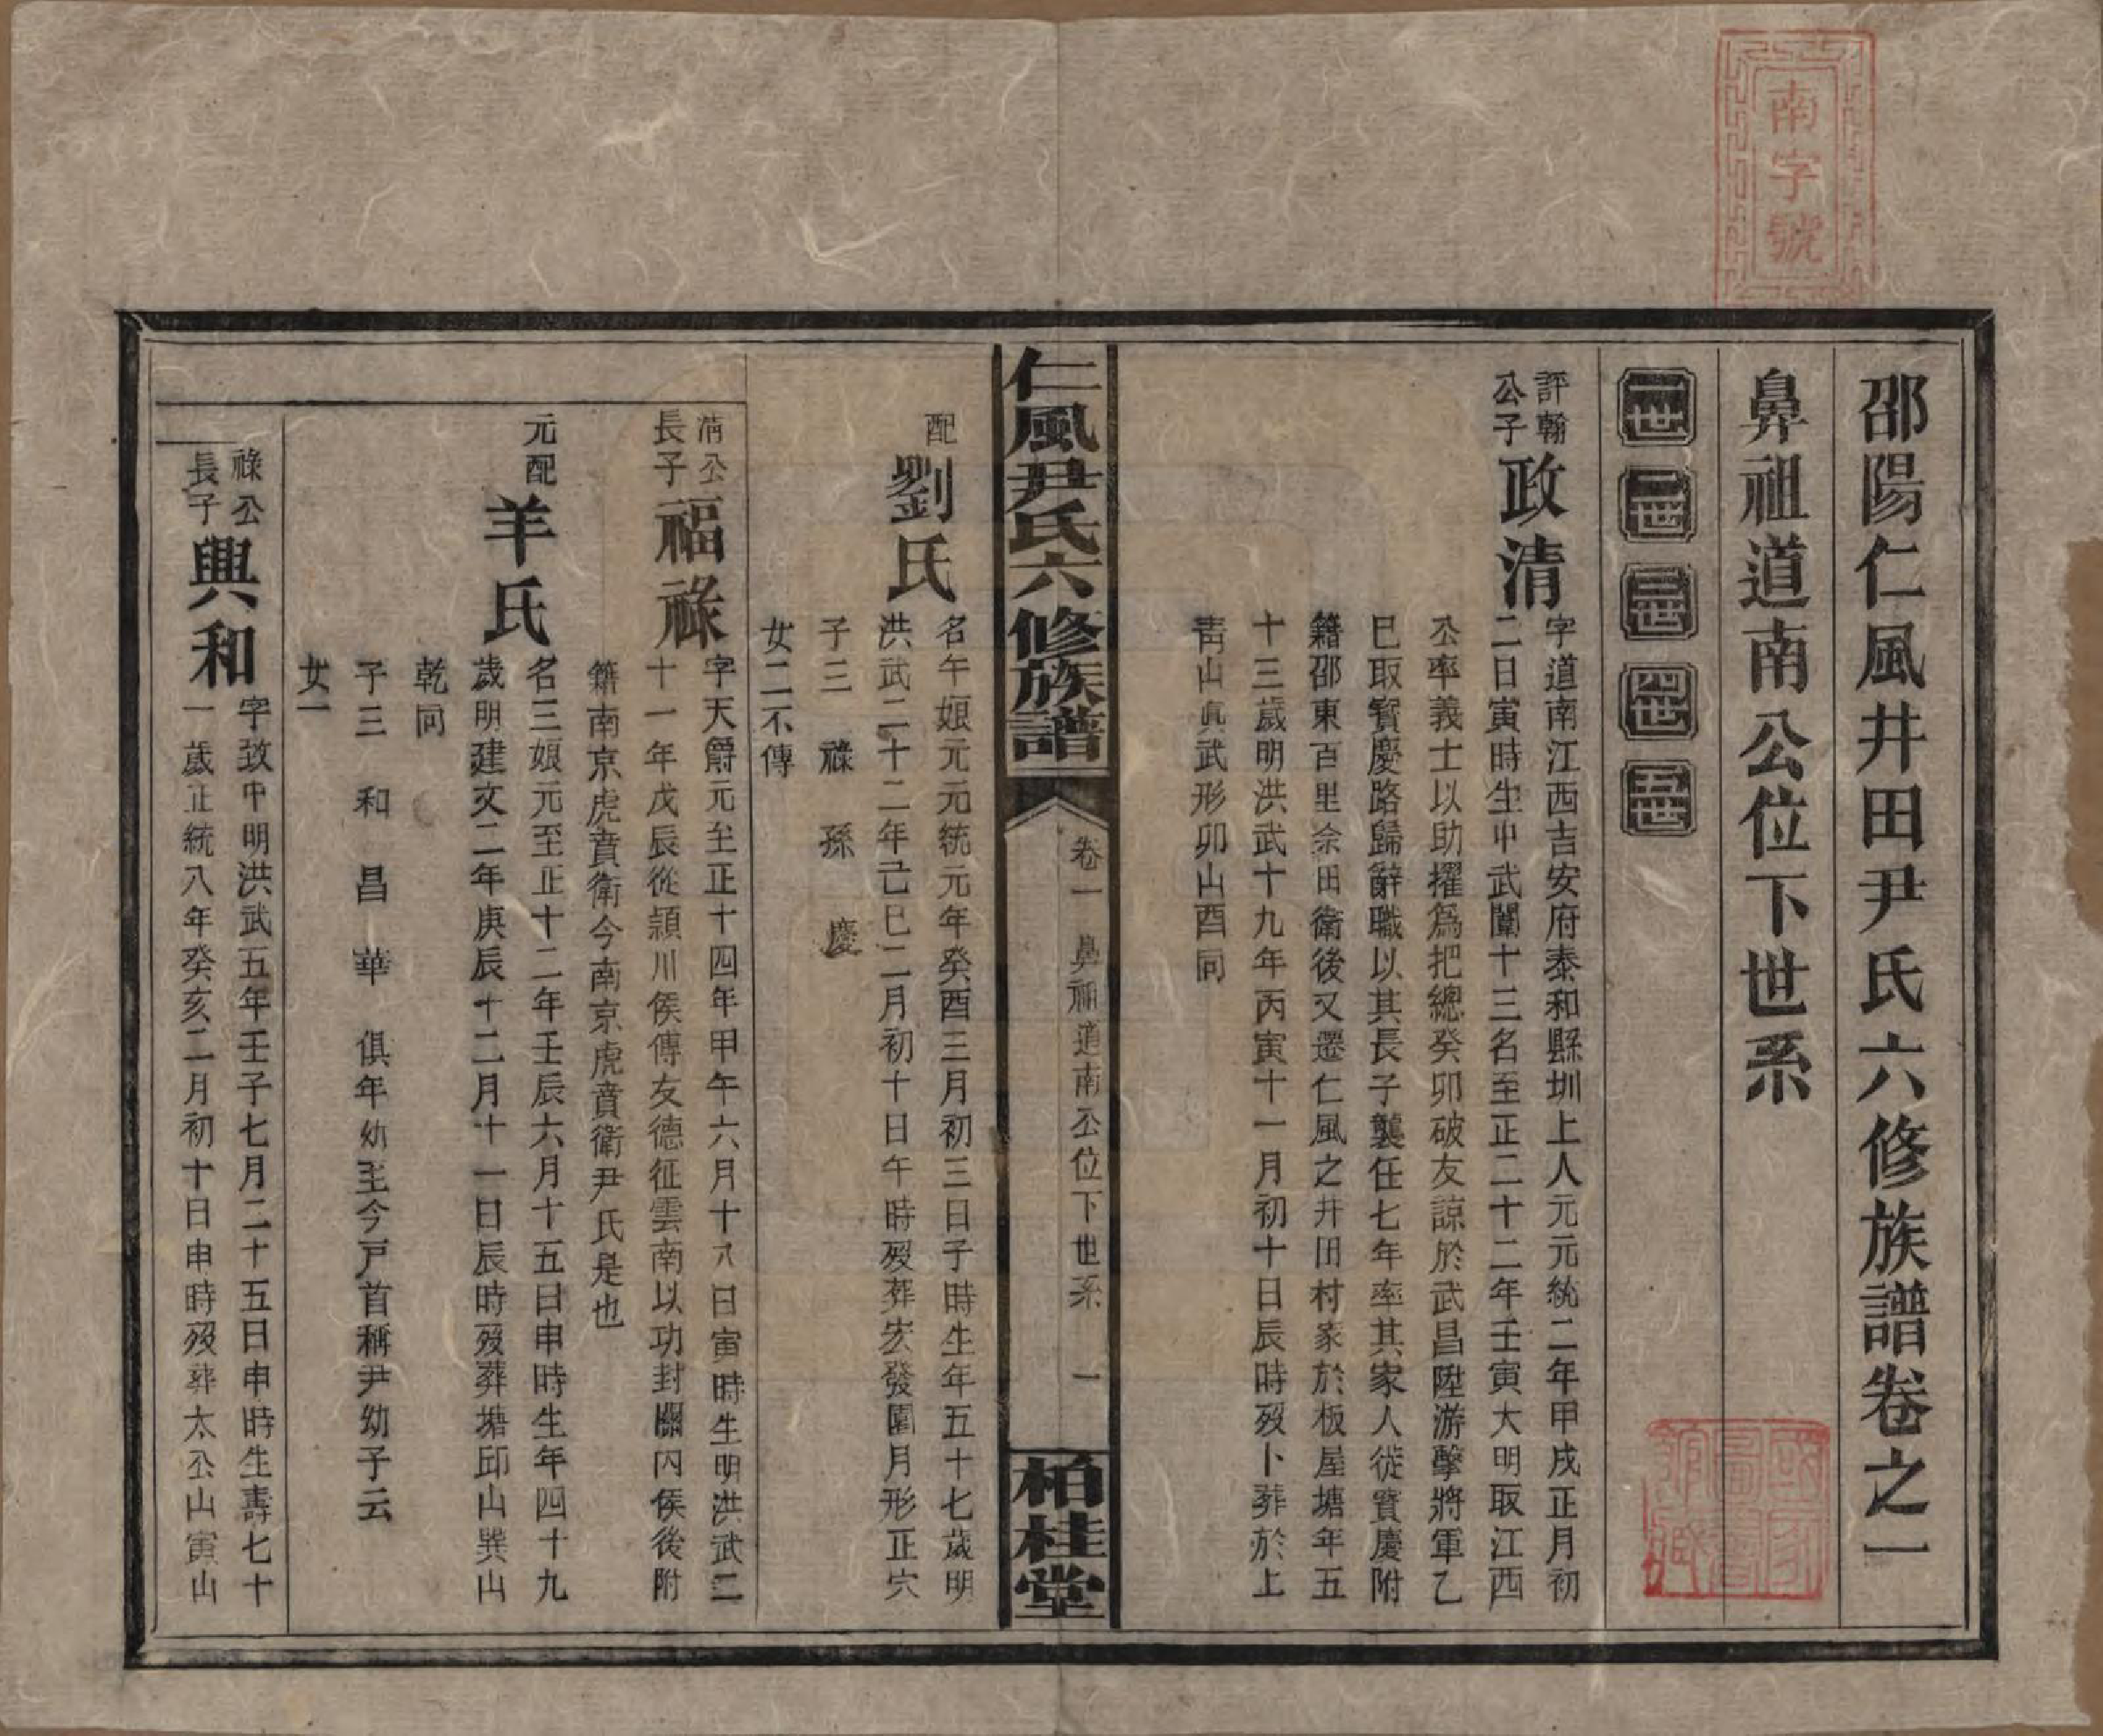 南字號
邵陽仁風井田尹氏六修族譜卷之一
鼻祖道南公位下世系
一世 二世 三世 四世 五世
評翰
公子
政清
字道南江西吉安府泰和縣圳上人元元統二年甲戌正月初
二日寅時生中武闈十三名至正二十二年壬寅大明取江西
公率義士以助擢爲把總癸卯破友諒於武昌陞游擊將軍乙
巳取寳慶路歸辭職以其長子襲任七年率其家人徙寳慶附
籍邵東百里佘田衛後又遷仁風之井田村家於板屋塘年五
十三歲明洪武十九年丙寅十一月初十日辰時殁卜葬於上
靑山眞武形卯山酉同
仁風尹氏六修族譜
卷一 鼻祖道南公位下世系 一
柏桂堂
配
劉氏
名午娘元元統元年癸酉三月初三日子時生年五十七歲明
洪武二十二年己巳二月初十日午時殁葬宏發園月形正穴
子三 祿 孫 慶
女二不傳
淸公
長子
福祿
字天爵元至正十四年甲午六月十八日寅時生明洪武二
十一年戊辰從頴川侯傅友德征雲南以功封關內侯後附
籍南京虎賁衛今南京虎賁衛尹氏是也
元配
羊氏
名三娘元至正十二年壬辰六月十五日申時生年四十九
歲明建文二年庚辰十二月十一日辰時殁葬塘邱山巽山
乾同
子三 和 昌 華 俱年幼至今戸首稱尹幼子云
女一
祿公
長子
興和
字致中明洪武五年壬子七月二十五日申時生壽七十
一歲正統八年癸亥二月初十日申時殁葬太公山寅山